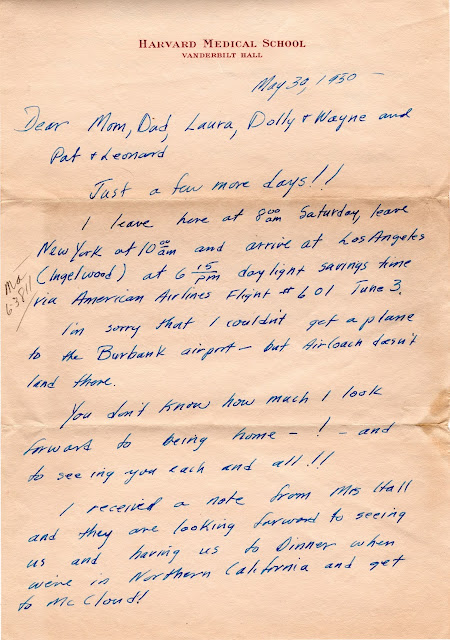 HARVARD MEDICAL SCHOOL
VANDERBILT HALL
May 30, 1950 -
Dear Mom, Dad, Laura, Dolly + Wayne and
Pat + Leonard
Just a few more days!!
I leave here at 8 00 am Saturday, leave
New York at 10 00 am and arrive at Los Angeles
(Ingelwood) at 6 15 pm daylight savings time
via American Airlines Flight # 601 June 3.
Ma
6-3811
I'm sorry that I couldn't get a plane
to the Burbank airport - but AirCoach doesn't
land there.
You don't know how much I look
forward to being home - ! - and
to seeing you each and all!!
I received a note from Mrs Hall
and they are looking forward to seeing
us and having us to Dinner when
we're in Northern California and get
to McCloud!